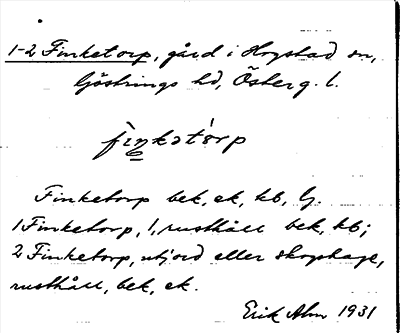 1-2 Finketorp, gård i Hogstad sn,
Göstrings hd, Österg. l.
fìŋkətòrp
Finketorp bek, ek, kb, G.
1 Finketorp, 1, rusthåll bek, kb;
2 Finketorp, utjord eller skogshage,
rusthåll, bek, ek.
Erik Abm 1931